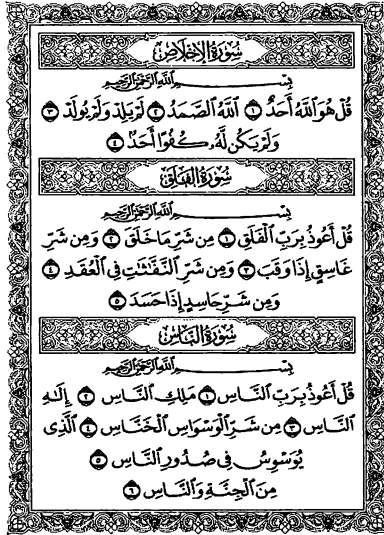 سُورَةُ الإِخْلَاصِ
بِسْمِ اللَّهِ الرَّحْمَٰنِ الرَّحِيمِ
قُلْ هُوَ اللَّهُ أَحَدٌ ١ اللَّهُ الصَّمَدُ ٢ لَمْ يَلِدْ وَلَمْ يُولَدْ ٣
وَلَمْ يَكُن لَّهُ كُفُوًا أَحَدٌ ٤
سُورَةُ الفَلَقِ
بِسْمِ اللَّهِ الرَّحْمَٰنِ الرَّحِيمِ
قُلْ أَعُوذُ بِرَبِّ الْفَلَقِ ١ مِن شَرِّ مَا خَلَقَ ٢ وَمِن شَرِّ
غَاسِقٍ إِذَا وَقَبَ ٣ وَمِن شَرِّ النَّفَّٰثَٰتِ فِي الْعُقَدِ ٤
وَمِن شَرِّ حَاسِدٍ إِذَا حَسَدَ ٥
سُورَةُ النَّاسِ
بِسْمِ اللَّهِ الرَّحْمَٰنِ الرَّحِيمِ
قُلْ أَعُوذُ بِرَبِّ النَّاسِ ١ مَلِكِ النَّاسِ ٢ إِلَٰهِ
النَّاسِ ٣ مِن شَرِّ الْوَسْوَاسِ الْخَنَّاسِ ٤ الَّذِي
يُوَسْوِسُ فِي صُدُورِ النَّاسِ ٥
مِنَ الْجِنَّةِ وَالنَّاسِ ٦